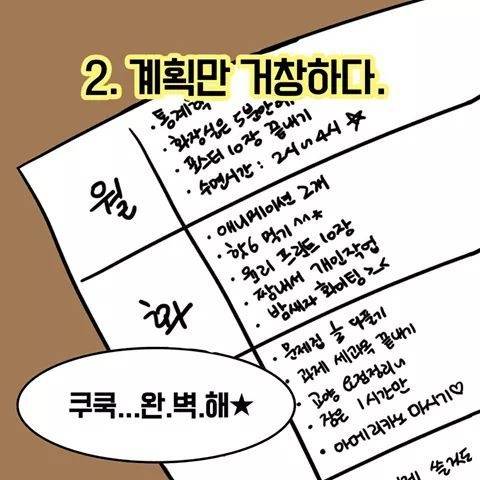 2. 계획만 거창하다.
통계학
· 화장실은 5분안에
· 포스터 10장 끝내기
· 수면시간 : 2시~4시 ☆
월
· 애니메이션 2개
· 핫6 먹기^^*
· 프린트 10장
· 짬내서 개인작업
· 밤새자 화이팅><
화
· 문제집 들 다풀기
· 과제 세과목 끝내기
· 교양 요점정리~
· 잠은 1시간만
· 아메리카노 마시기♡
쿠쿡...완.벽.해★